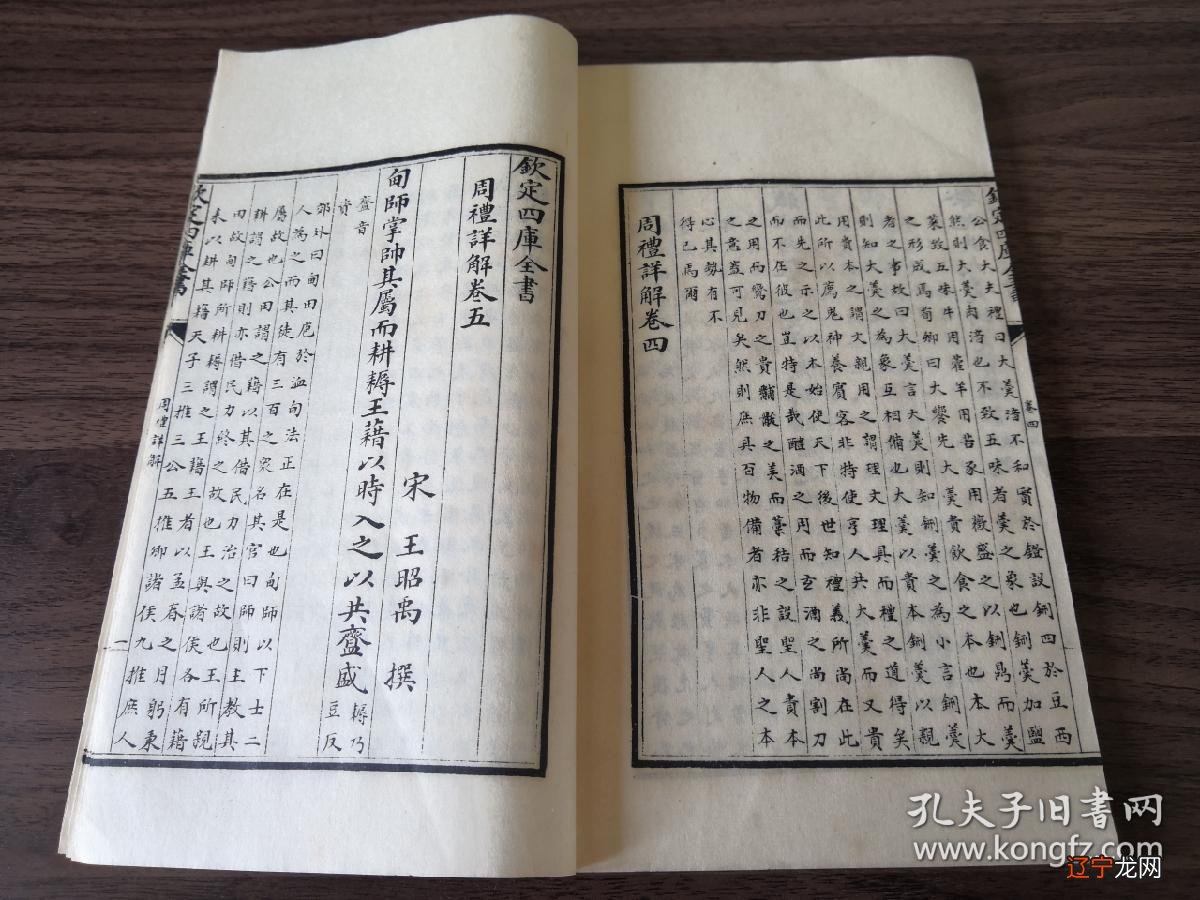 欽定四庫全書
卷四
公食大夫禮曰大羹湆不和實於鐙設鉶四於豆西
然則大羹肉湆也不致五味者羹之象也鉶羹加鹽
菜致五味牛用藿羊用苦豕用薇盛之以鉶鼎而羹
之形成焉荀卿曰大饗先大羹貴飲食之本也本大
者之事故曰大羹言大羹則知鉶羹之為小言鉶羹
則知大羹之為象互相備也大羹以貴本鉶羹以親
用貴本之謂文親用之謂理文理具而禮之道得矣
此所以薦鬼神養賓客非特使亨人共大羹而又貴
而先之示之以本始使天下後世知禮義所尚在此
而不在彼也豈特是哉醴酒之用而玄酒之尚割刀
之用而鸞刀之貴黼黻之美而藁秸之設聖人貴本
之意蓋可見矣然則庶具百物備者亦非聖人之本
心其勢有不
得已焉爾
周禮詳解卷四
欽定四庫全書
周禮詳解卷五
宋 王昭禹 撰
甸師掌帥其屬而耕耨王藉以時入之以共齍盛
耨乃豆反
齍音資
郊外曰甸田厄於洫句法正在是也甸師以下士二
人為之而其徒有三百之衆名其官曰師則主教其
屬故也公田謂之藉以其借民力治之故也王所親
耕謂之藉則亦借民力終之故也王與諸侯各有藉
田故甸師所耕耨謂之王藉王者以孟春之月躬秉
耒以耕其藉天子三推三公五推卿諸侯九推庶人
欽定四庫全書
周禮詳解
一
孔夫子旧书网
www.kongfz.com
辽宁龙网